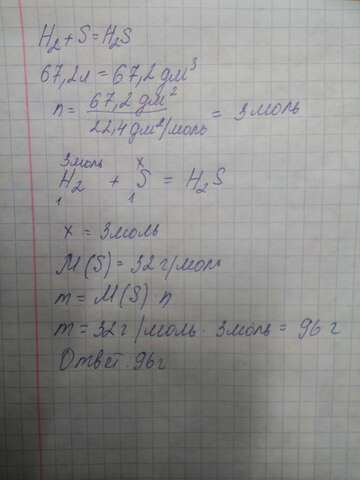 H₂ + S = H₂S
67,2л = 67,2 дм³
n = 67,2 дм² / 22,4 дм³/моль = 3 моль
3 моль x
H₂ + S = H₂S
1 1
x = 3 моль
M(S) = 32 г/моль
m = M(S) · n
m = 32 г/моль · 3 моль = 96 г
Ответ. 96 г